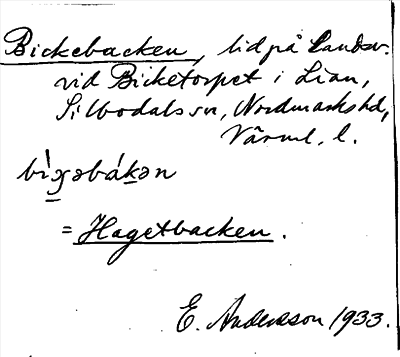 Bickebacken, lid på Landsv.
vid Bicketorpet i Lian,
Silbodals sn, Nordmarks hd,
Värml. l.
bìɟəbákən
= Hagetbacken.
E. Andersson 1933.